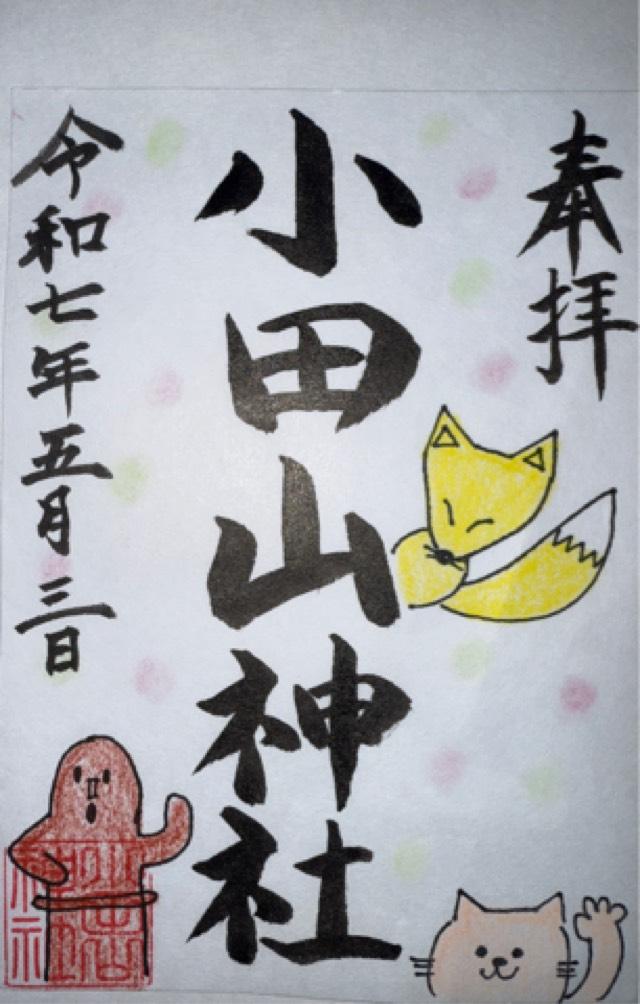 奉拝
小田山神社
令和七年五月三日